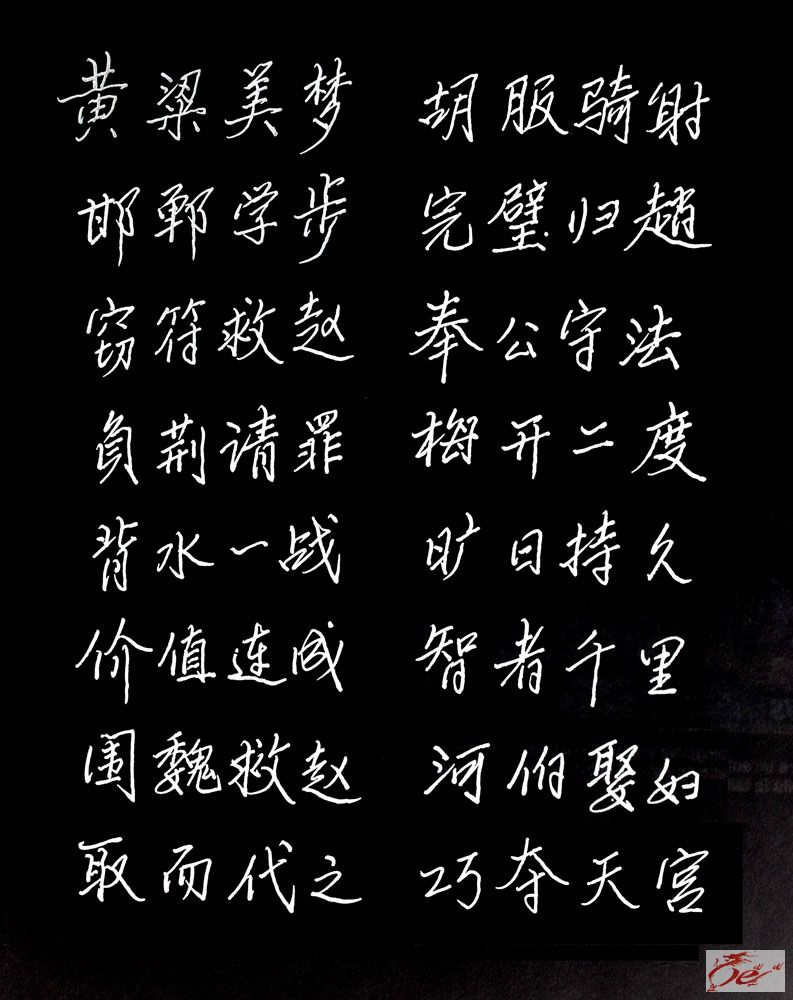 黄粱美梦 胡服骑射
邯郸学步 完璧归趙
窃符救赵 奉公守法
負荆请罪 梅开二度
背水一战 旷日持久
价值连成 智者千里
围魏救赵 河伯娶妇
取而代之 巧夺天宫